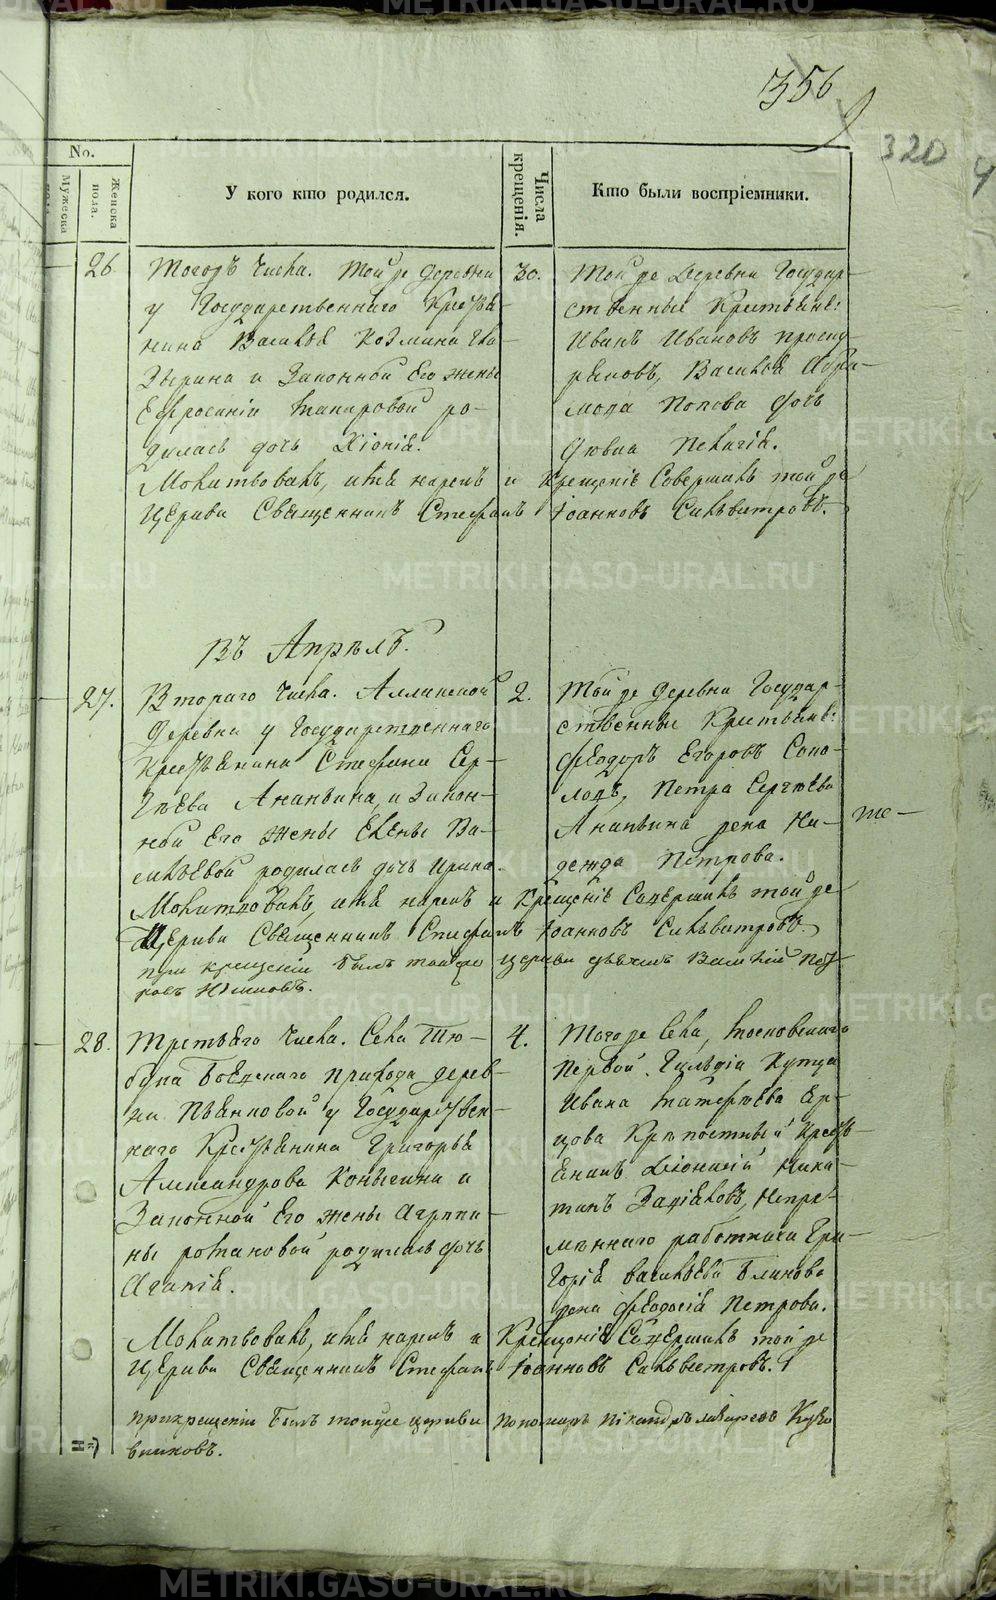 356
320
No.
Мужеска
Женска пола.
У кого кто родился.
Числа крещенія.
Кто были воспріемники.
26. Тогожъ Числа. Той же Деревни
у Государственнаго Крестья-
нина Василья Козмина
и Законной Его жены
Ефросиніи ро-
дилась дочь Хіонія.
30. Той же Деревни Государ-
ственные Крестьяне:
Иванъ Ивановъ Проску-
ряковъ, Василья Абра-
мова Попова дочь
Девица Пелагія.
Молитвовалъ, имя нарекъ и Крещеніе Совершилъ той же
Церкви Священникъ Стефанъ Іоанновъ Сильвестровъ.
Въ Апрѣлѣ.
27. Втораго Числа.
Деревни у Государственнаго
Крестьянина Стефана Сер-
гѣева Ананьина, и Закон-
ной Его жены Елены Ва-
сильевой родилась дочь Ирина.
2. Той же Деревни Государ-
ственные Крестьяне:
Феодоръ Егоровъ Соко-
ловъ, Петра Сергѣева
Ананьина жена На-
дежда Петрова.
Молитвовалъ, имя нарекъ и Крещеніе Совершилъ той же
Церкви Священникъ Стефанъ Іоанновъ Сильвестровъ.
при крещеніи былъ тойже церкви дьячекъ Василій Пет-
ровъ
28. Третьяго Числа. Села Тю-
бука Боевскаго прихода дерев-
ни Пьянковой у Государствен-
наго Крестьянина Григорья
Александрова Коньгина и
Законной Его жены Агрипи-
ны Романовой родилась дочь
Агапія.
4. Того же Села, Московскаго
Первой Гильдіи Купца
Ивана
Крѣпостный Кресть-
янинъ Діонисій Ники-
тинъ Непре-
мѣннаго работника Гри-
горія Васильева Блинова
жена Феодосія Петрова.
Молитвовалъ, имя нарекъ и Крещеніе Совершилъ той же
Церкви Священникъ Стефанъ Іоанновъ Сильвестровъ.
при крещеніи былъ тойже церкви пономарь Никандръ
METRIKI.GASO-URAL.RU